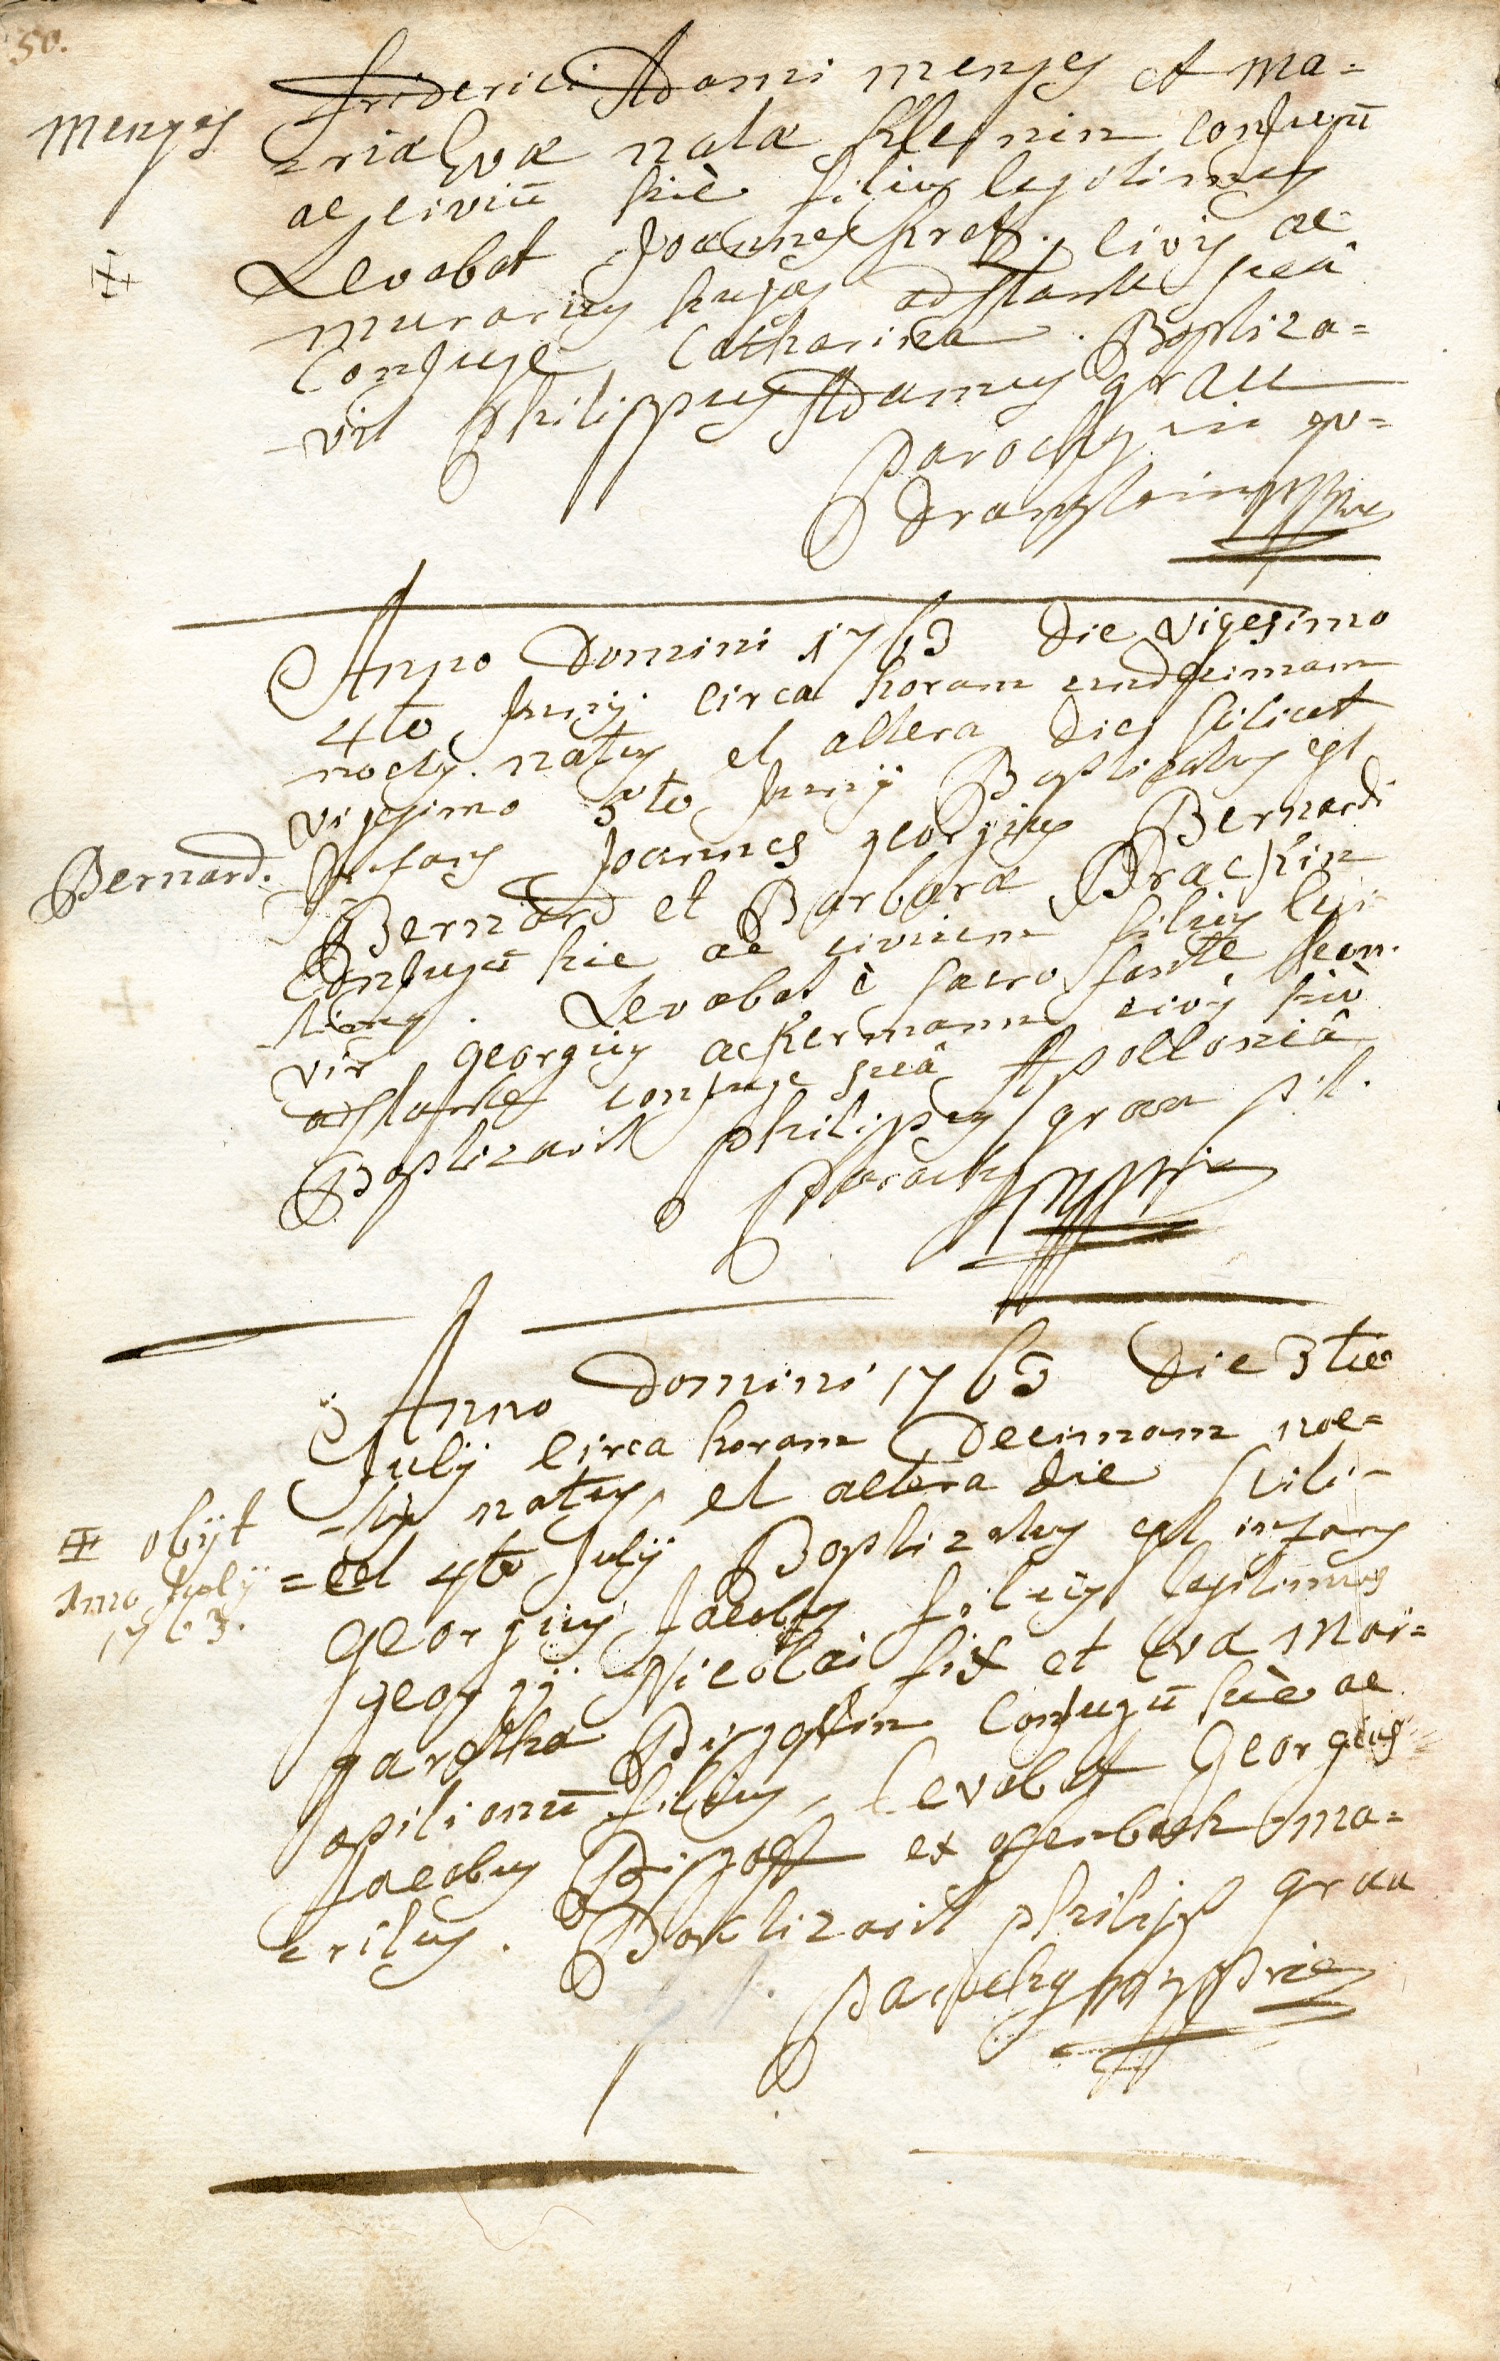 50.
Friderici Adami menges et Ma=
Menges
riæ Evæ natæ Kleinin conjugū
ac civiū hic filius legitimus
Levabat Joannes Kref civis ac
murarius hujas adstante suâ
Conjuge Catharina. Baptiza=
vit Philippus Adamus grau
parochus in
Anno Domini 1763 die vigesimo
4to Junij circa horam undecimam
noctis natus et altera die scilicet
vigesimo 5to Junij Baptizatus est
Infans Joannes georgius Bernardi
Bernard.
Bernard et Barbaræ Brackin
Conjugū hic ac civium filius legi
timus. Levabat è sacro fonte
vir georgius ackermann civis hic
adstante conjuge suâ Apolloniâ
Baptizavit philippus grau p.t.
parochus mppria
Anno Domini 1763 die 3tia
Julij circa horam Decimam noc=
tis natus, et altera die scili=
✠ obijt
=cet 4to Julij Baptizatus est infans
Anno Julij
1763.
georgius Jacobus filius legitimus
georgij Nicolai fix et Eva Mar=
garetha Bizostin Conjugū hic ac
opilionū filius, levabat Georgius
Jacobus Bizost ex
ritus. Baptizavit philipp grau
parochus mppria